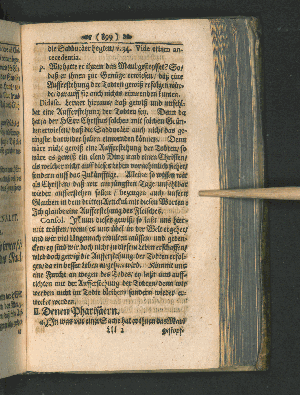 (899)
die Sadducäer hegten, v. 34. Vide etiam an-
tecedentia.
p. Wie hatte er ihnen das Maul gestopffet? So/
daß er ihnen zur Genüge erwiesen, daß eine
Aufferstehung der Todten gewiß er folgen wür-
de/ darauff sie auch nichts einwenden konten.
Didasc. Lernet hieraus, daß gewiß und unfehl-
bar eine Aufferstehung der Todten sey. Denn da
hat ja der HErr Christus solches mit solchen Grün-
den erwiesen/ daß die Sadducäer auch nicht das ge-
ringste darwider haben einwenden können. Denn
wäre nicht gewiß eine Aufferstehung der Todten/ so
wäre es gewiß ein elend Ding um einen Christen/
als welcher nicht auff dieses Leben vornehmlich siehet/
sondern auff das Zukünfftige. Alleine so wissen wir
als Christen/ daß wir am jüngsten Tage unfehlbar
werden aufferstehen sollen / bezeugen auch unsern
Glauben in dem dritten Articul mit diesen Worten:
Ich glaube eine Aufferstehung des Fleisches.
Consol. Ist nun dieses gewiß/ so lasst uns hier-
mit trösten/ wenn es uns übel an der Welt ergehet/
und wir viel Ungemach erdulten müssen/ und geden-
cken/ es sind wir doch nicht zu diesem Leben erschaffen/
wird doch gewiß die Aufferstehung der Todten erfol-
gen/ da ein besser Leben angehen wird. Kömmt uns
eine Furcht an wegen des Todes/ ey last uns auff-
richten mit der Aufferstehung der Todten/ denn wir
werden nicht im Tode bleiben/ sondern wieder er-
wecket werden.
II. Denen Pharisäern.
a. In was vor einer Sache hat er ihnen das Maul
Lll 2 gestopf-